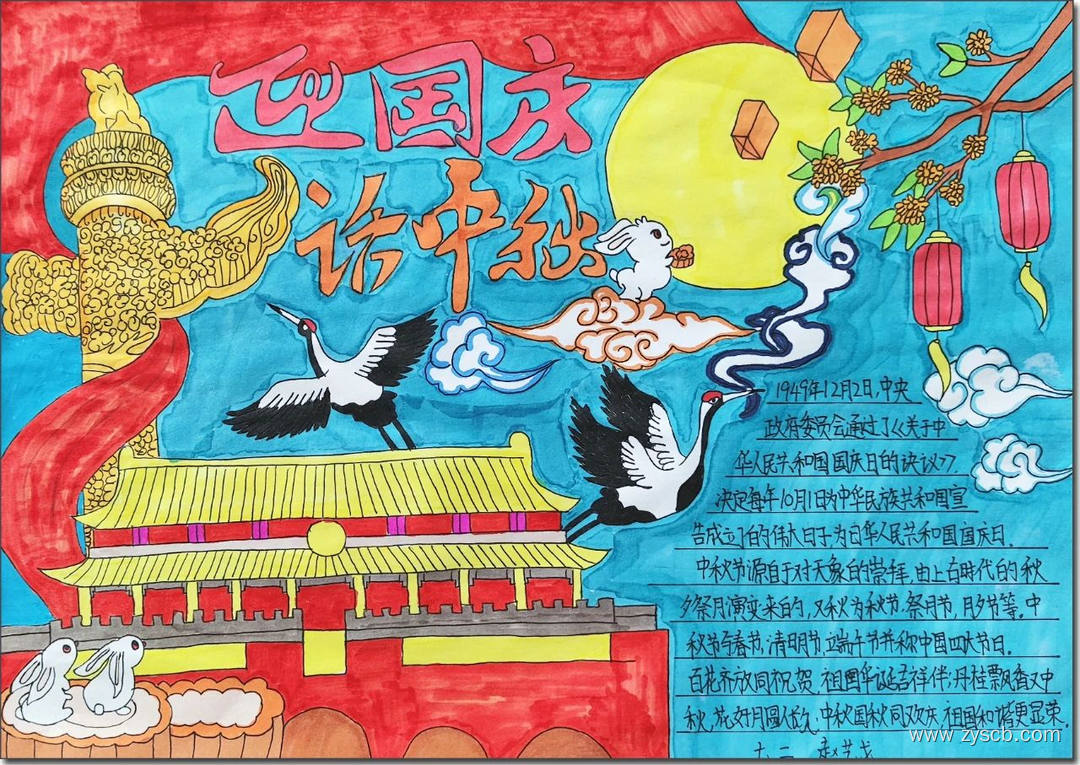 迎国庆
话中秋
1949年12月2日,中央
政府委员会通过了《关于中
华人民共和国国庆日的诀议》
决定每年10月1日为中华民族共和国宣
告成立的伟大日子为中华人民共和国国庆日.
中秋节源自于对天象的崇拜,由上古时代的秋
夕祭月演变来的,又秋为秋节.祭月节,月夕节等.中
秋节与春节,清明节,端午节并称中国四大节日.
百花齐放同祝贺,祖国华诞吉祥伴;丹桂飘香又中
秋,花好月圆人长久,中秋国秋同欢庆,祖国和谐更显荣.
www.zyscb.com